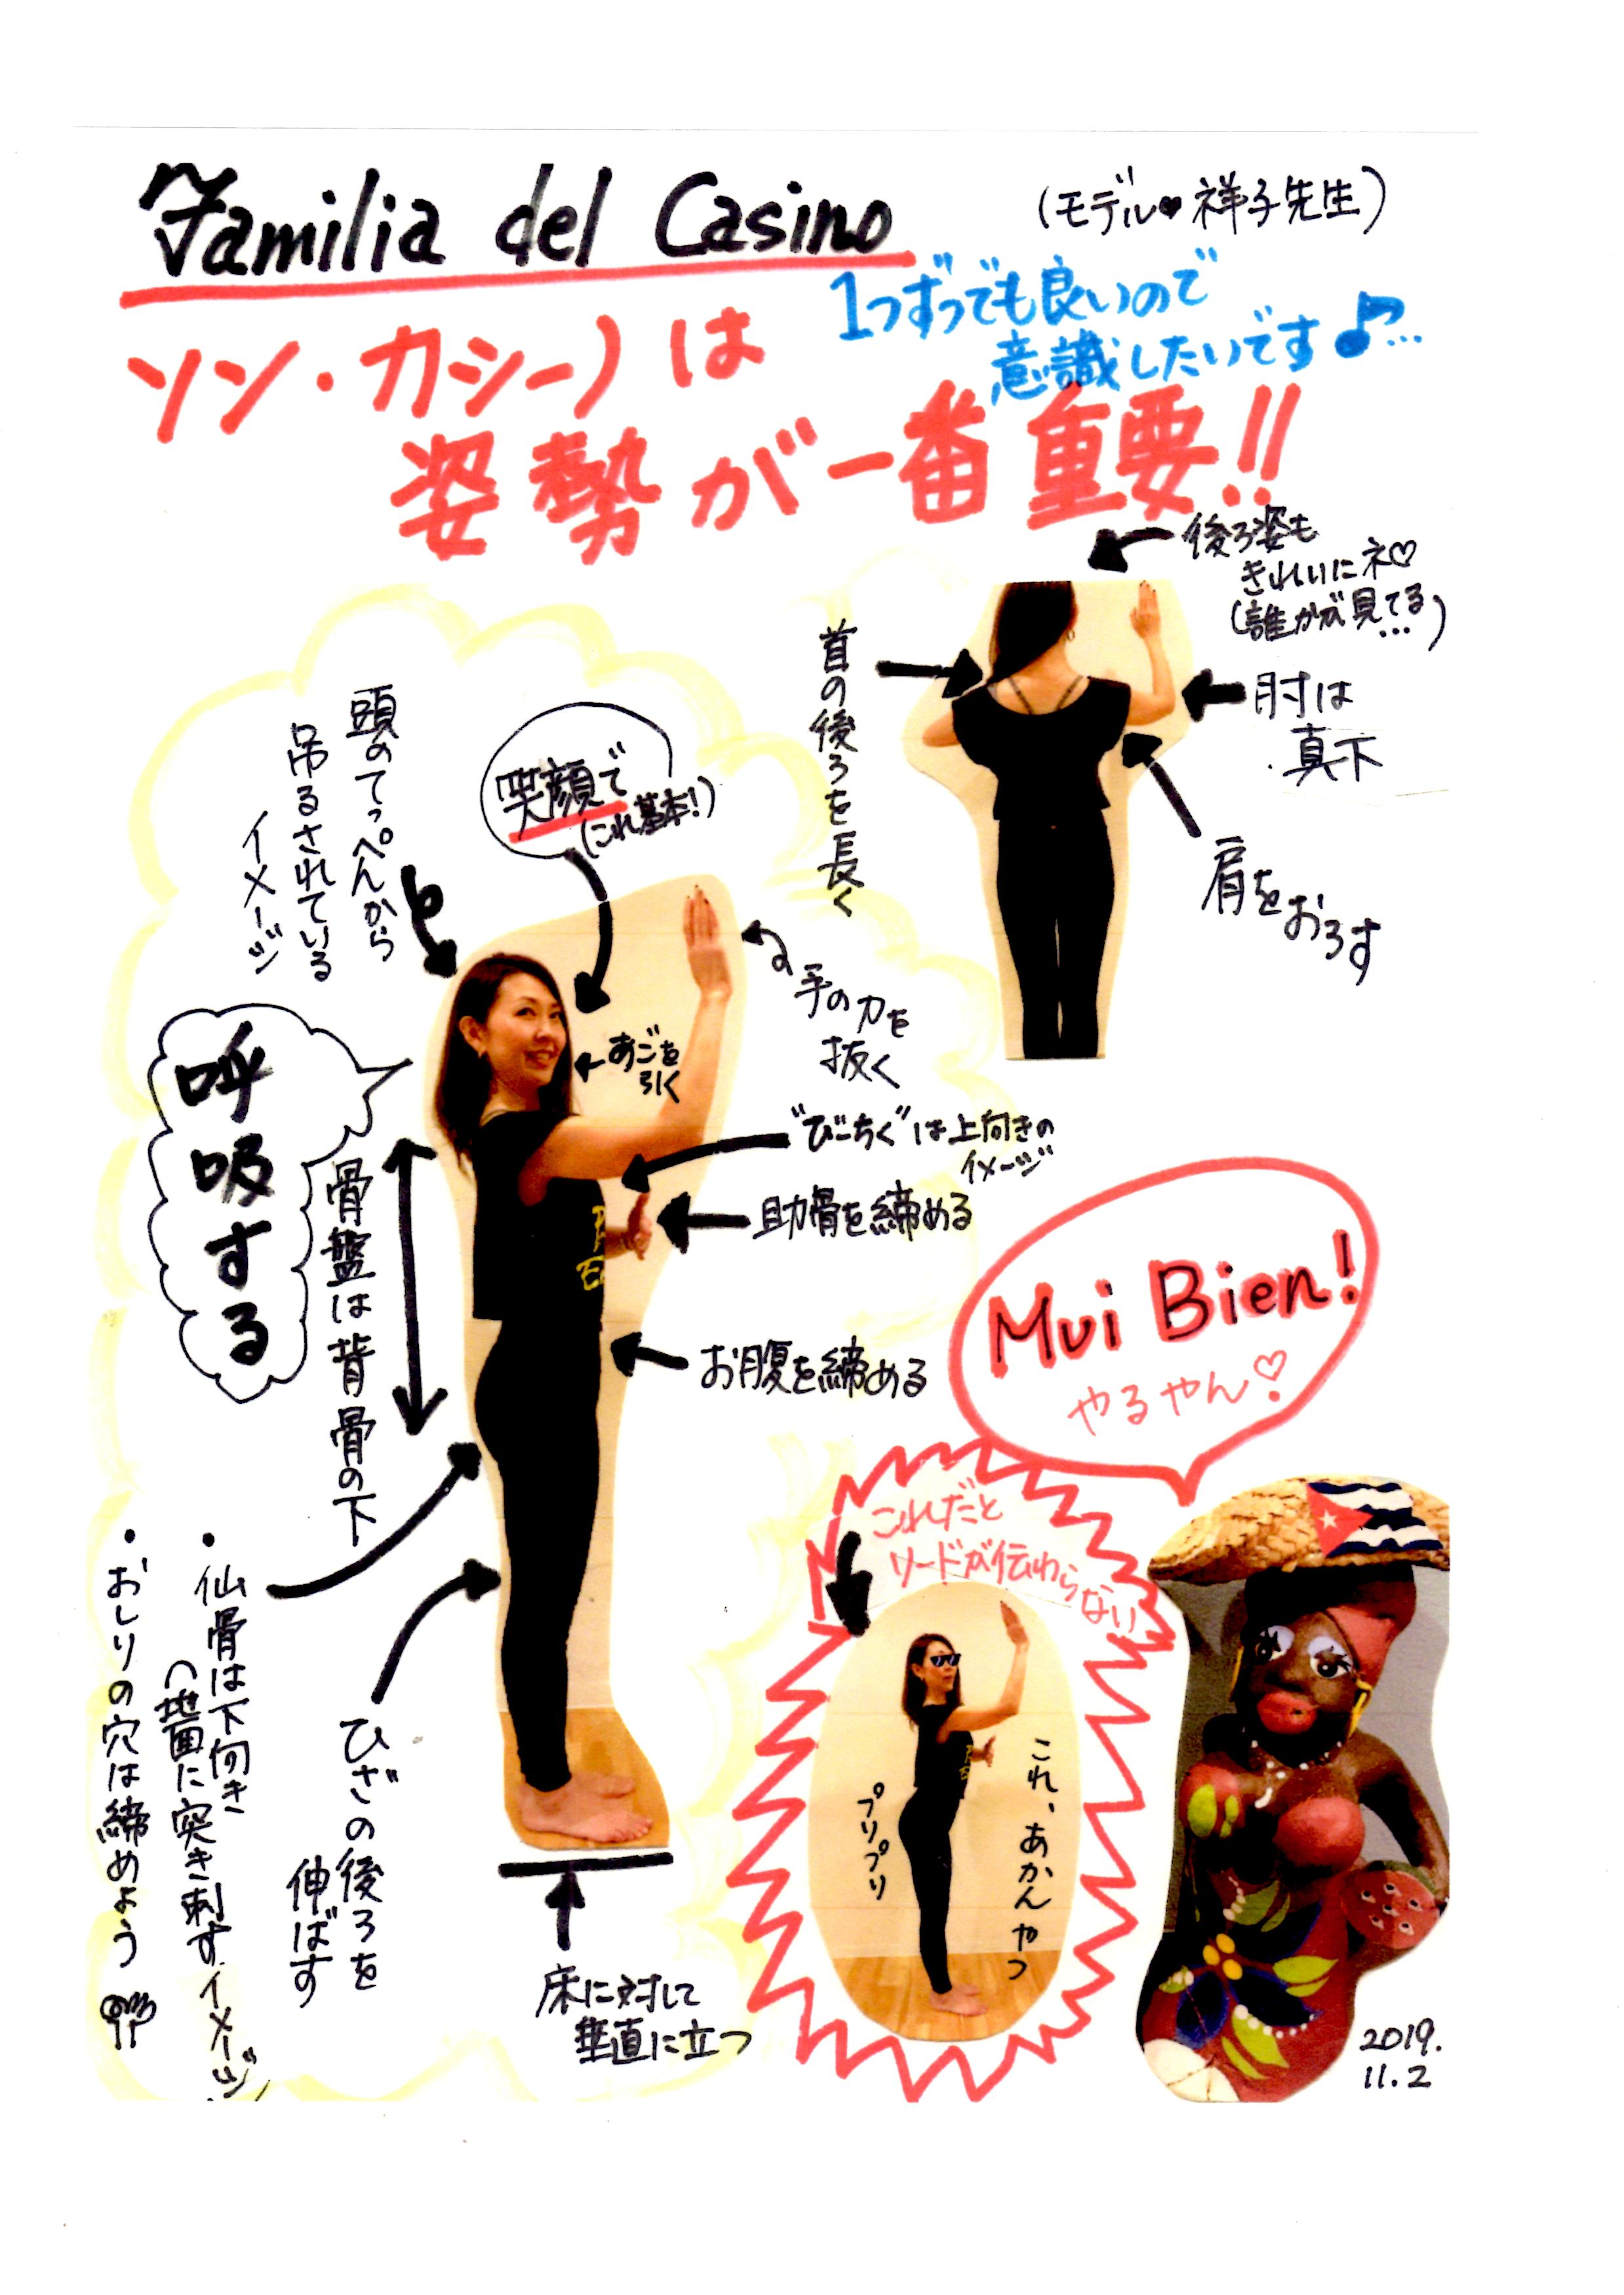 Familia del Casino
(モデル♥祥子先生)
1つずつでも良いので
意識したいです♪…
ソン・カシーノは
姿勢が一番重要!!
後ろ姿も
きれいにネ♡
(誰かが見てる…)
首の後ろを長く
肘は
真下
肩をおろす
頭のてっぺんから
吊るされている
イメージ
笑顔で
(これ基本!)
手の力を
抜く
あごを
引く
呼吸する
"びーちく"は上向きの
イメージ
助骨を締める
骨盤は背骨の下
お腹を締める
Mui Bien!
やるやん♡
これだと
リードが伝わらない
・仙骨は下向き
(地面に突き刺すイメージ)
・おしりの穴は締めよう
ひざの後ろを
伸ばす
これ、あかんやつ
プリプリ
床に対して
垂直に立つ
2019.
11.2